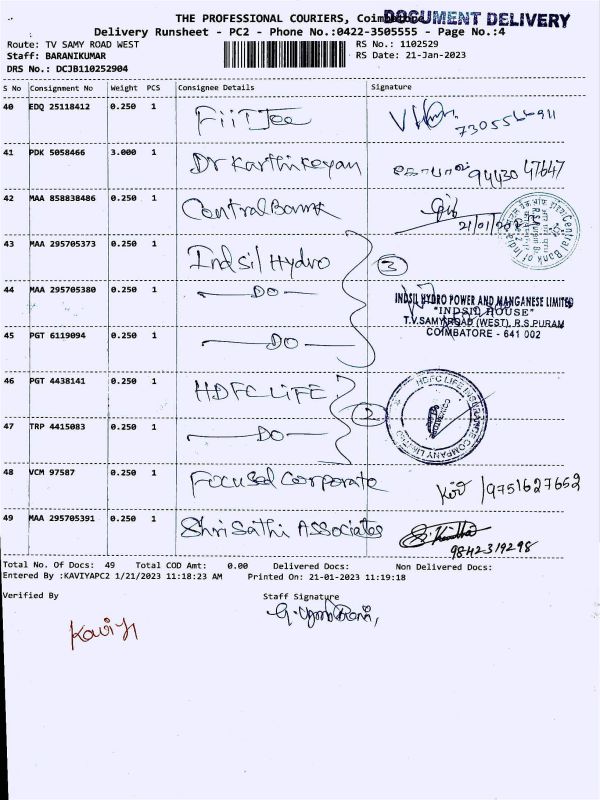 THE PROFESSIONAL COURIERS, Coimbatore
DOCUMENT DELIVERY
Delivery Runsheet - PC2 - Phone No.:0422-3505555 - Page No.:4
Route: TV SAMY ROAD WEST RS No.: 1102529
Staff: BARANIKUMAR RS Date: 21-Jan-2023
DRS No.: DCJB110252904
S No Consignment No Weight PCS Consignee Details Signature
40 EDQ 25118412 0.250 1 FiiTJee
41 PDK 5058466 3.000 1 Dr Karthikeyan 94430 47647
42 MAA 858838486 0.250 1 Central Bank 21/01/2023
Central Bank of India
43 MAA 295705373 0.250 1 Indsil Hydro 3
44 MAA 295705380 0.250 1 — DO —
INDSIL HYDRO POWER AND MANGANESE LIMITED
"INDSIL HOUSE"
T.V.SAMY ROAD (WEST), R.S.PURAM
COIMBATORE - 641 002
45 PGT 6119094 0.250 1 — DO —
46 PGT 4438141 0.250 1 HDFC LIFE 2
HDFC LIFE INSURANCE COMPANY LIMITED
47 TRP 4415083 0.250 1 — DO —
48 VCM 97587 0.250 1 Focused Corporate 9751627652
49 MAA 295705391 0.250 1 Shri Sathi Associates 9842319298
Total No. Of Docs: 49 Total COD Amt: 0.00 Delivered Docs: Non Delivered Docs:
Entered By :KAVIYAPC2 1/21/2023 11:18:23 AM Printed On: 21-01-2023 11:19:18
Verified By Staff Signature